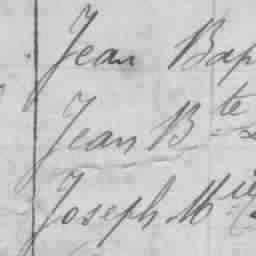 Jean Bap
Jean Bte
Joseph Mie